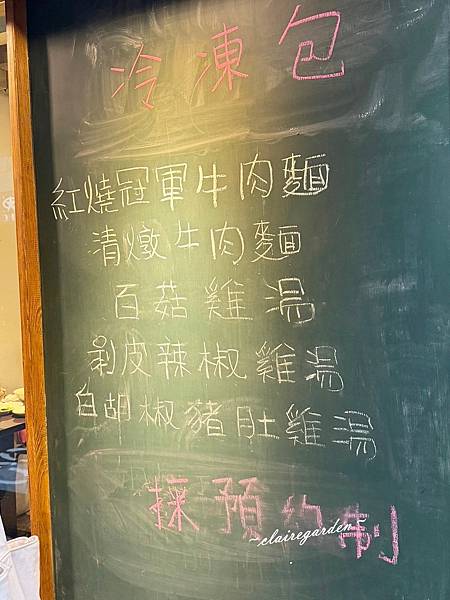 冷凍包
紅燒冠軍牛肉麵
清燉牛肉麵
百菇雞湯
剝皮辣椒雞湯
白胡椒豬肚雞湯
採預約制
clairegarden